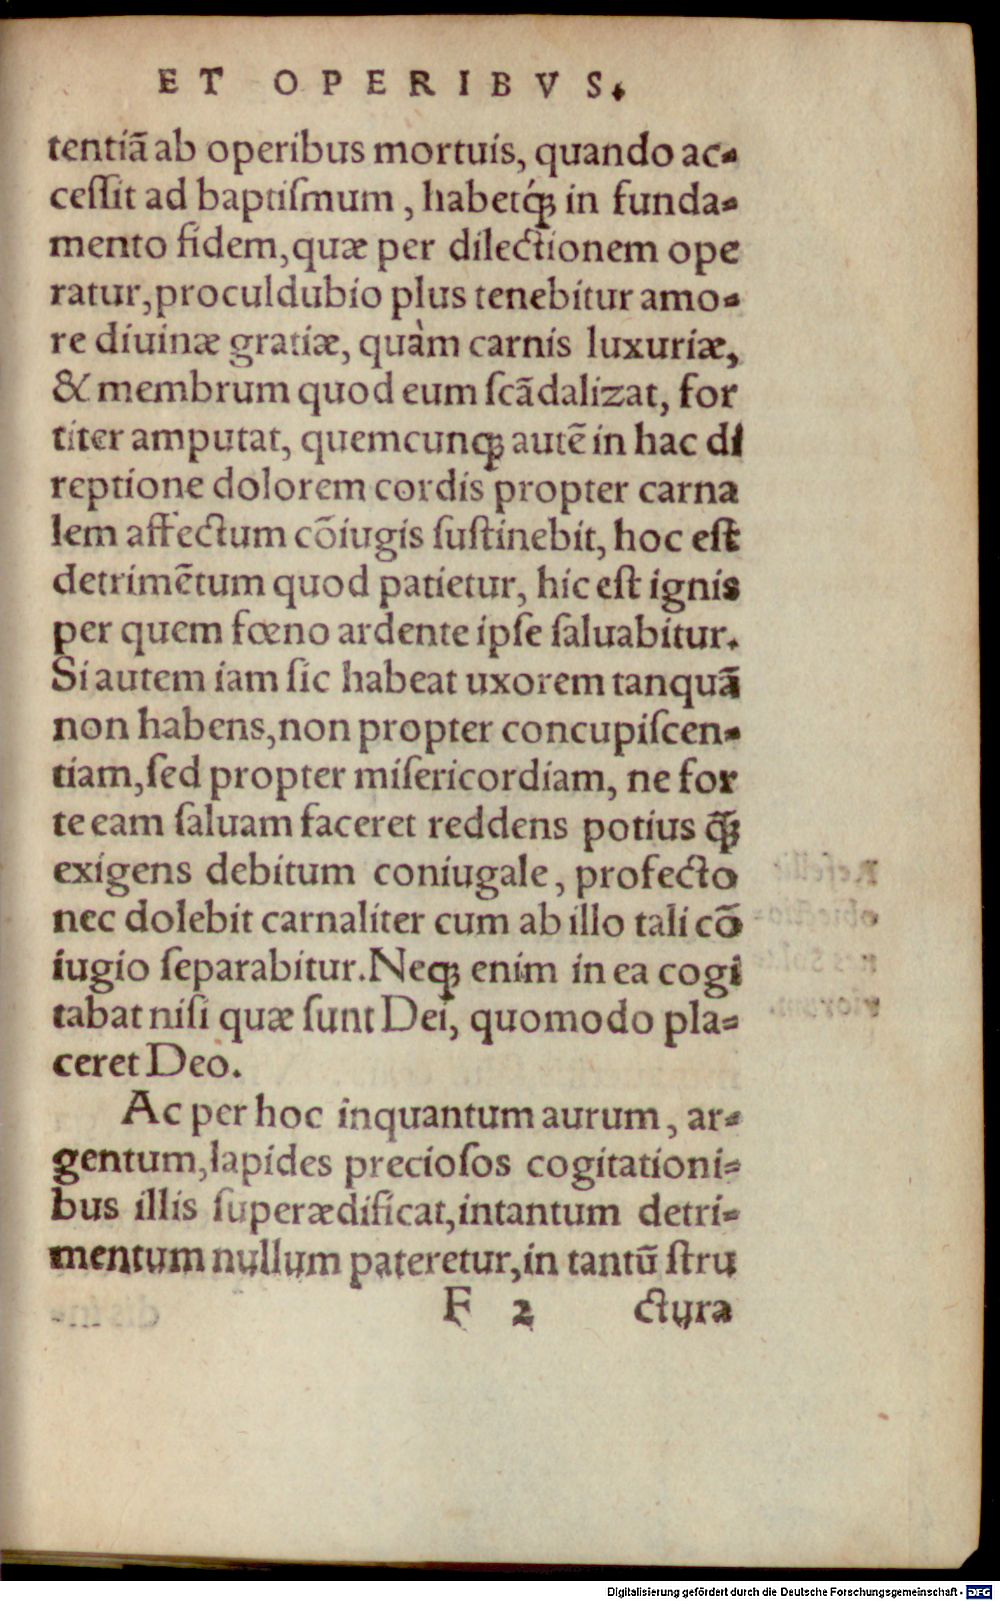 ET OPERIBVS.
tentiā ab operibus mortuis, quando ac-
ceſſit ad baptiſmum, habetq́ꝫ in funda-
mento fidem, quæ per dilectionem ope
ratur, proculdubio plus tenebitur amo-
re diuinæ gratiæ, quàm carnis luxuriæ,
& membrum quod eum ſcādalizat, for
titer amputat, quemcunqꝫ autē in hac di
reptione dolorem cordis propter carna
lem affectum cōiugis ſuſtinebit, hoc eſt
detrimētum quod patietur, hic eſt ignis
per quem fœno ardente ipſe ſaluabitur.
Si autem iam ſic habeat uxorem tanquā
non habens, non propter concupiſcen-
tiam, ſed propter miſericordiam, ne for
te eam ſaluam faceret reddens potius q̄ꝫ
exigens debitum coniugale, profecto
nec dolebit carnaliter cum ab illo tali cō
iugio ſeparabitur. Neqꝫ enim in ea cogi
tabat niſi quæ ſunt Dei, quomodo pla-
ceret Deo.
Ac per hoc inquantum aurum, ar-
gentum, lapides precioſos cogitationi-
bus illis ſuperædificat, intantum detri-
mentum nullum pateretur, in tantū ſtru
F 2 ctura
Digitalisierung gefördert durch die Deutsche Forschungsgemeinschaft - DFG